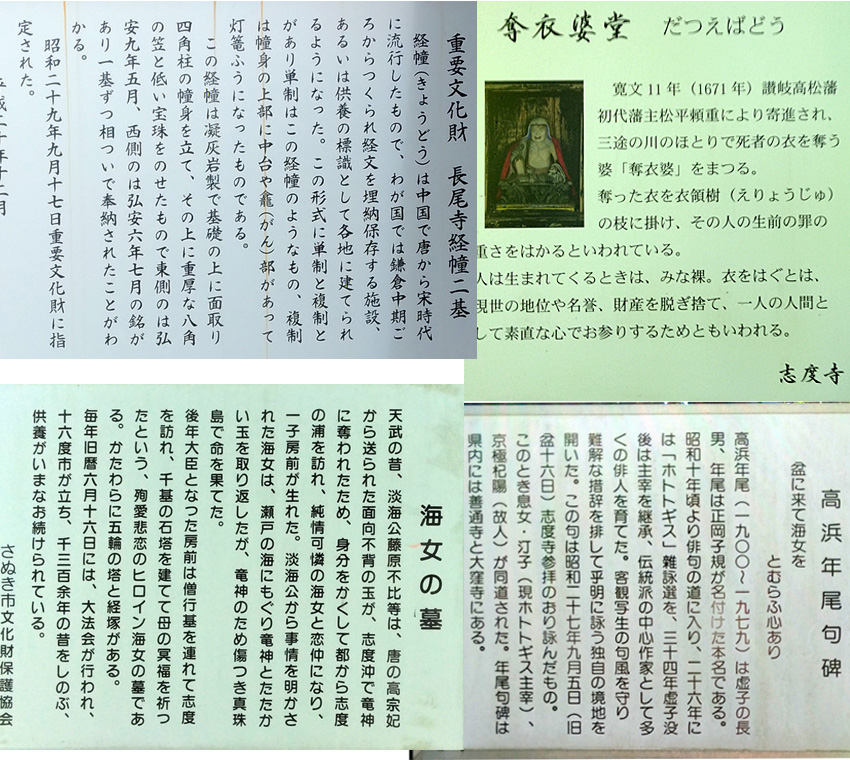 重要文化財　長尾寺経幢二基
経幢(きょうどう)は中国で唐から宋時代
に流行したもので、わが国では鎌倉中期ご
ろからつくられ経文を埋納保存する施設、
あるいは供養の標識として各地に建てられ
るようになった。この形式に単制と複制と
があり単制はこの経幢のようなもの、複制
は幢身の上部に中台や龕(がん)部があって
灯篭ふうになったものである。
この経幢は凝灰岩製で基礎の上に面取り
四角柱の幢身を立て、その上に重厚な八角
の笠と低い宝珠をのせたもので東側のは弘
安九年五月、西側のは弘安六年七月の銘が
あり一基ずつ相ついで奉納されたことがわ
かる。
昭和二十九年九月十七日重要文化財に指
定された。
奪衣婆堂　だつえばどう
寛文11年（1671年）讃岐高松藩
初代藩主松平頼重により寄進され、
三途の川のほとりで死者の衣を奪う
婆「奪衣婆」をまつる。
奪った衣を衣領樹（えりょうじゅ）
の枝に掛け、その人の生前の罪の
重さをはかるといわれている。
人は生まれてくるときは、みな裸。衣をはぐとは、
現世の地位や名誉、財産を脱ぎ捨て、一人の人間と
して素直な心でお参りするためともいわれる。
志度寺
海女の墓
天武の昔、淡海公藤原不比等は、唐の高宗妃
から送られた面向不背の玉が、志度沖で竜神
に奪われたため、身分をかくして都から志度
の浦を訪れ、純情可憐の海女と恋仲になり、
一子房前が生れた。淡海公から事情を明かさ
れた海女は、瀬戸の海にもぐり竜神とたたか
い玉を取り返したが、竜神のため傷つき真珠
島で命を果てた。
後年大臣となった房前は僧行基を連れて志度
を訪れ、千基の石塔を建てて母の冥福を祈っ
たという、殉愛悲恋のヒロイン海女の墓であ
る。かたわらに五輪の塔と経塚がある。
毎年旧暦六月十六日には、大法会が行われ、
十六度市が立ち、千三百余年の昔をしのぶ、
供養がいまなお続けられている。
さぬき市文化財保護協会
高浜年尾句碑
盆に来て海女を
とむらふ心あり
高浜年尾（一九〇〇～一九七九）は虚子の長
男、年尾は正岡子規が名付けた本名である。
昭和十年頃より俳句の道に入り、二十六年に
は「ホトトギス」雑詠選を、三十四年虚子没
後は主宰を継承、伝統派の中心作家として多
くの俳人を育てた。客観写生の句風を守り
難解な措辞を排して平明に詠う独自の境地を
開いた。この句は昭和二十七年九月五日（旧
盆十六日）志度寺参拝のおり詠んだもの。
このとき息女・汀子（現ホトトギス主宰）、
京極杞陽（故人）が同道された。年尾句碑は
県内には善通寺と大窪寺にある。